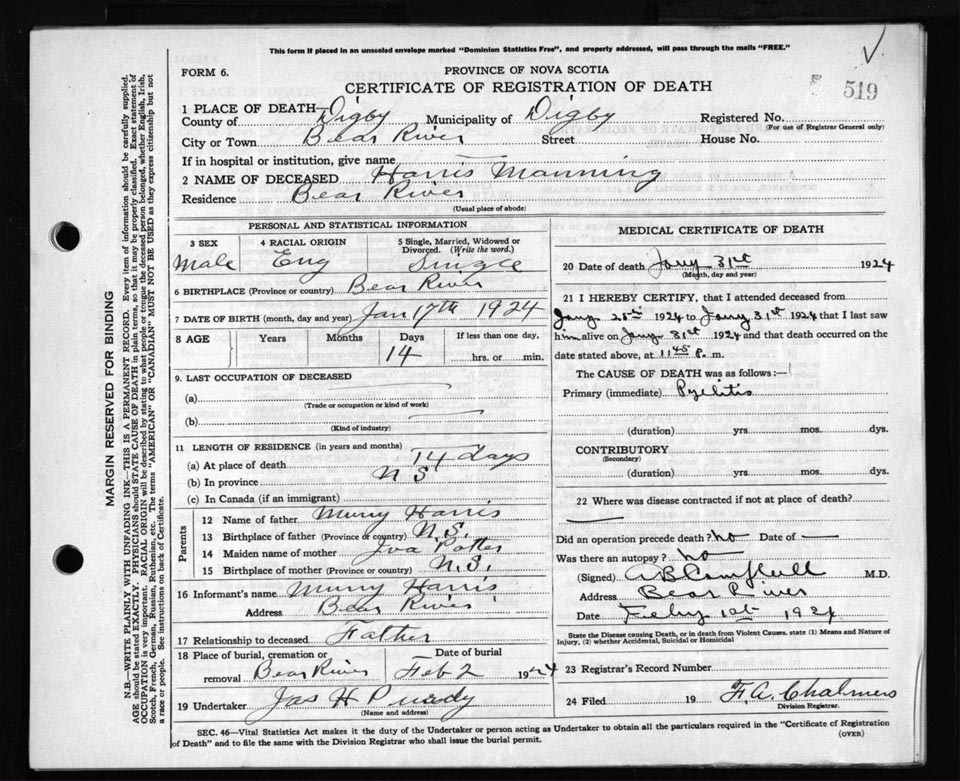 This form if placed in an unsealed envelope marked "Dominion Statistics Free", and properly addressed, will pass through the mails "FREE."
FORM 6.
PROVINCE OF NOVA SCOTIA
CERTIFICATE OF REGISTRATION OF DEATH
519
1 PLACE OF DEATH—
County of Digby Municipality of Digby Registered No.
(For use of Registrar General only)
City or Town Bear River Street House No.
If in hospital or institution, give name —
2 NAME OF DECEASED Harris Manning
Residence Bear River
(Usual place of abode)
PERSONAL AND STATISTICAL INFORMATION
3 SEX 4 RACIAL ORIGIN 5 Single, Married, Widowed or Divorced. (Write the word.)
Male Eng Single
6 BIRTHPLACE (Province or country) Bear River
7 DATE OF BIRTH (month, day and year) Jan 17th 1924
8 AGE Years Months Days If less than one day,
14 hrs. or min.
9. LAST OCCUPATION OF DECEASED
(a)
(Trade or occupation or kind of work)
(b)
(Kind of industry)
11 LENGTH OF RESIDENCE (in years and months)
(a) At place of death 14 days
(b) In province N S
(c) In Canada (if an immigrant)
Parents
12 Name of father Murry Harris
13 Birthplace of father (Province or country) N.S.
14 Maiden name of mother Iva Potter
15 Birthplace of mother (Province or country) N.S.
16 Informant's name Murry Harris
Address Bear River
17 Relationship to deceased Father
18 Place of burial, cremation or removal Bear River Date of burial Feb 2 1924
19 Undertaker Jas H Purdy
(Name and address)
MEDICAL CERTIFICATE OF DEATH
20 Date of death Jany 31st 1924
(Month, day and year)
21 I HEREBY CERTIFY, that I attended deceased from
Jany 25th 1924 to Jany 31st 1924 that I last saw
him alive on Jany 31st 1924 and that death occurred on
date stated above, at 11 45 P. m.
The CAUSE OF DEATH was as follows:—
Primary (immediate) Pyelitis
(duration) yrs. mos. dys.
CONTRIBUTORY
(Secondary)
(duration) yrs. mos. dys.
22 Where was disease contracted if not at place of death?
—
Did an operation precede death? No Date of —
Was there an autopsy? No
(Signed) A B Campbell M.D.
Address Bear River
Date Feby 1st 1924
State the Disease causing Death, or in death from Violent Causes, state (1) Means and Nature of
Injury, (2) whether Accidental, Suicidal or Homicidal
23 Registrar's Record Number
24 Filed 19 F. A. Chalmers
Division Registrar.
SEC. 46—Vital Statistics Act makes it the duty of the Undertaker or person acting as Undertaker to obtain all the particulars required in the "Certificate of Registration
of Death" and to file the same with the Division Registrar who shall issue the burial permit.
(OVER)
MARGIN RESERVED FOR BINDING
N.B.—WRITE PLAINLY WITH UNFADING INK—THIS IS A PERMANENT RECORD. Every item of information should be carefully supplied.
AGE should be stated EXACTLY. PHYSICIANS should STATE CAUSE OF DEATH in plain terms, so that it may be properly classified. Exact statement of
OCCUPATION is very important. RACIAL ORIGIN will be described by stating to what people or tongue the deceased person belonged, whether English, Irish,
Scotch, French, German, Russian, Ruthenian, etc. The terms "AMERICAN" OR "CANADIAN" MUST NOT BE USED as they express citizenship but not
a race or people. See instructions on back of Certificate.